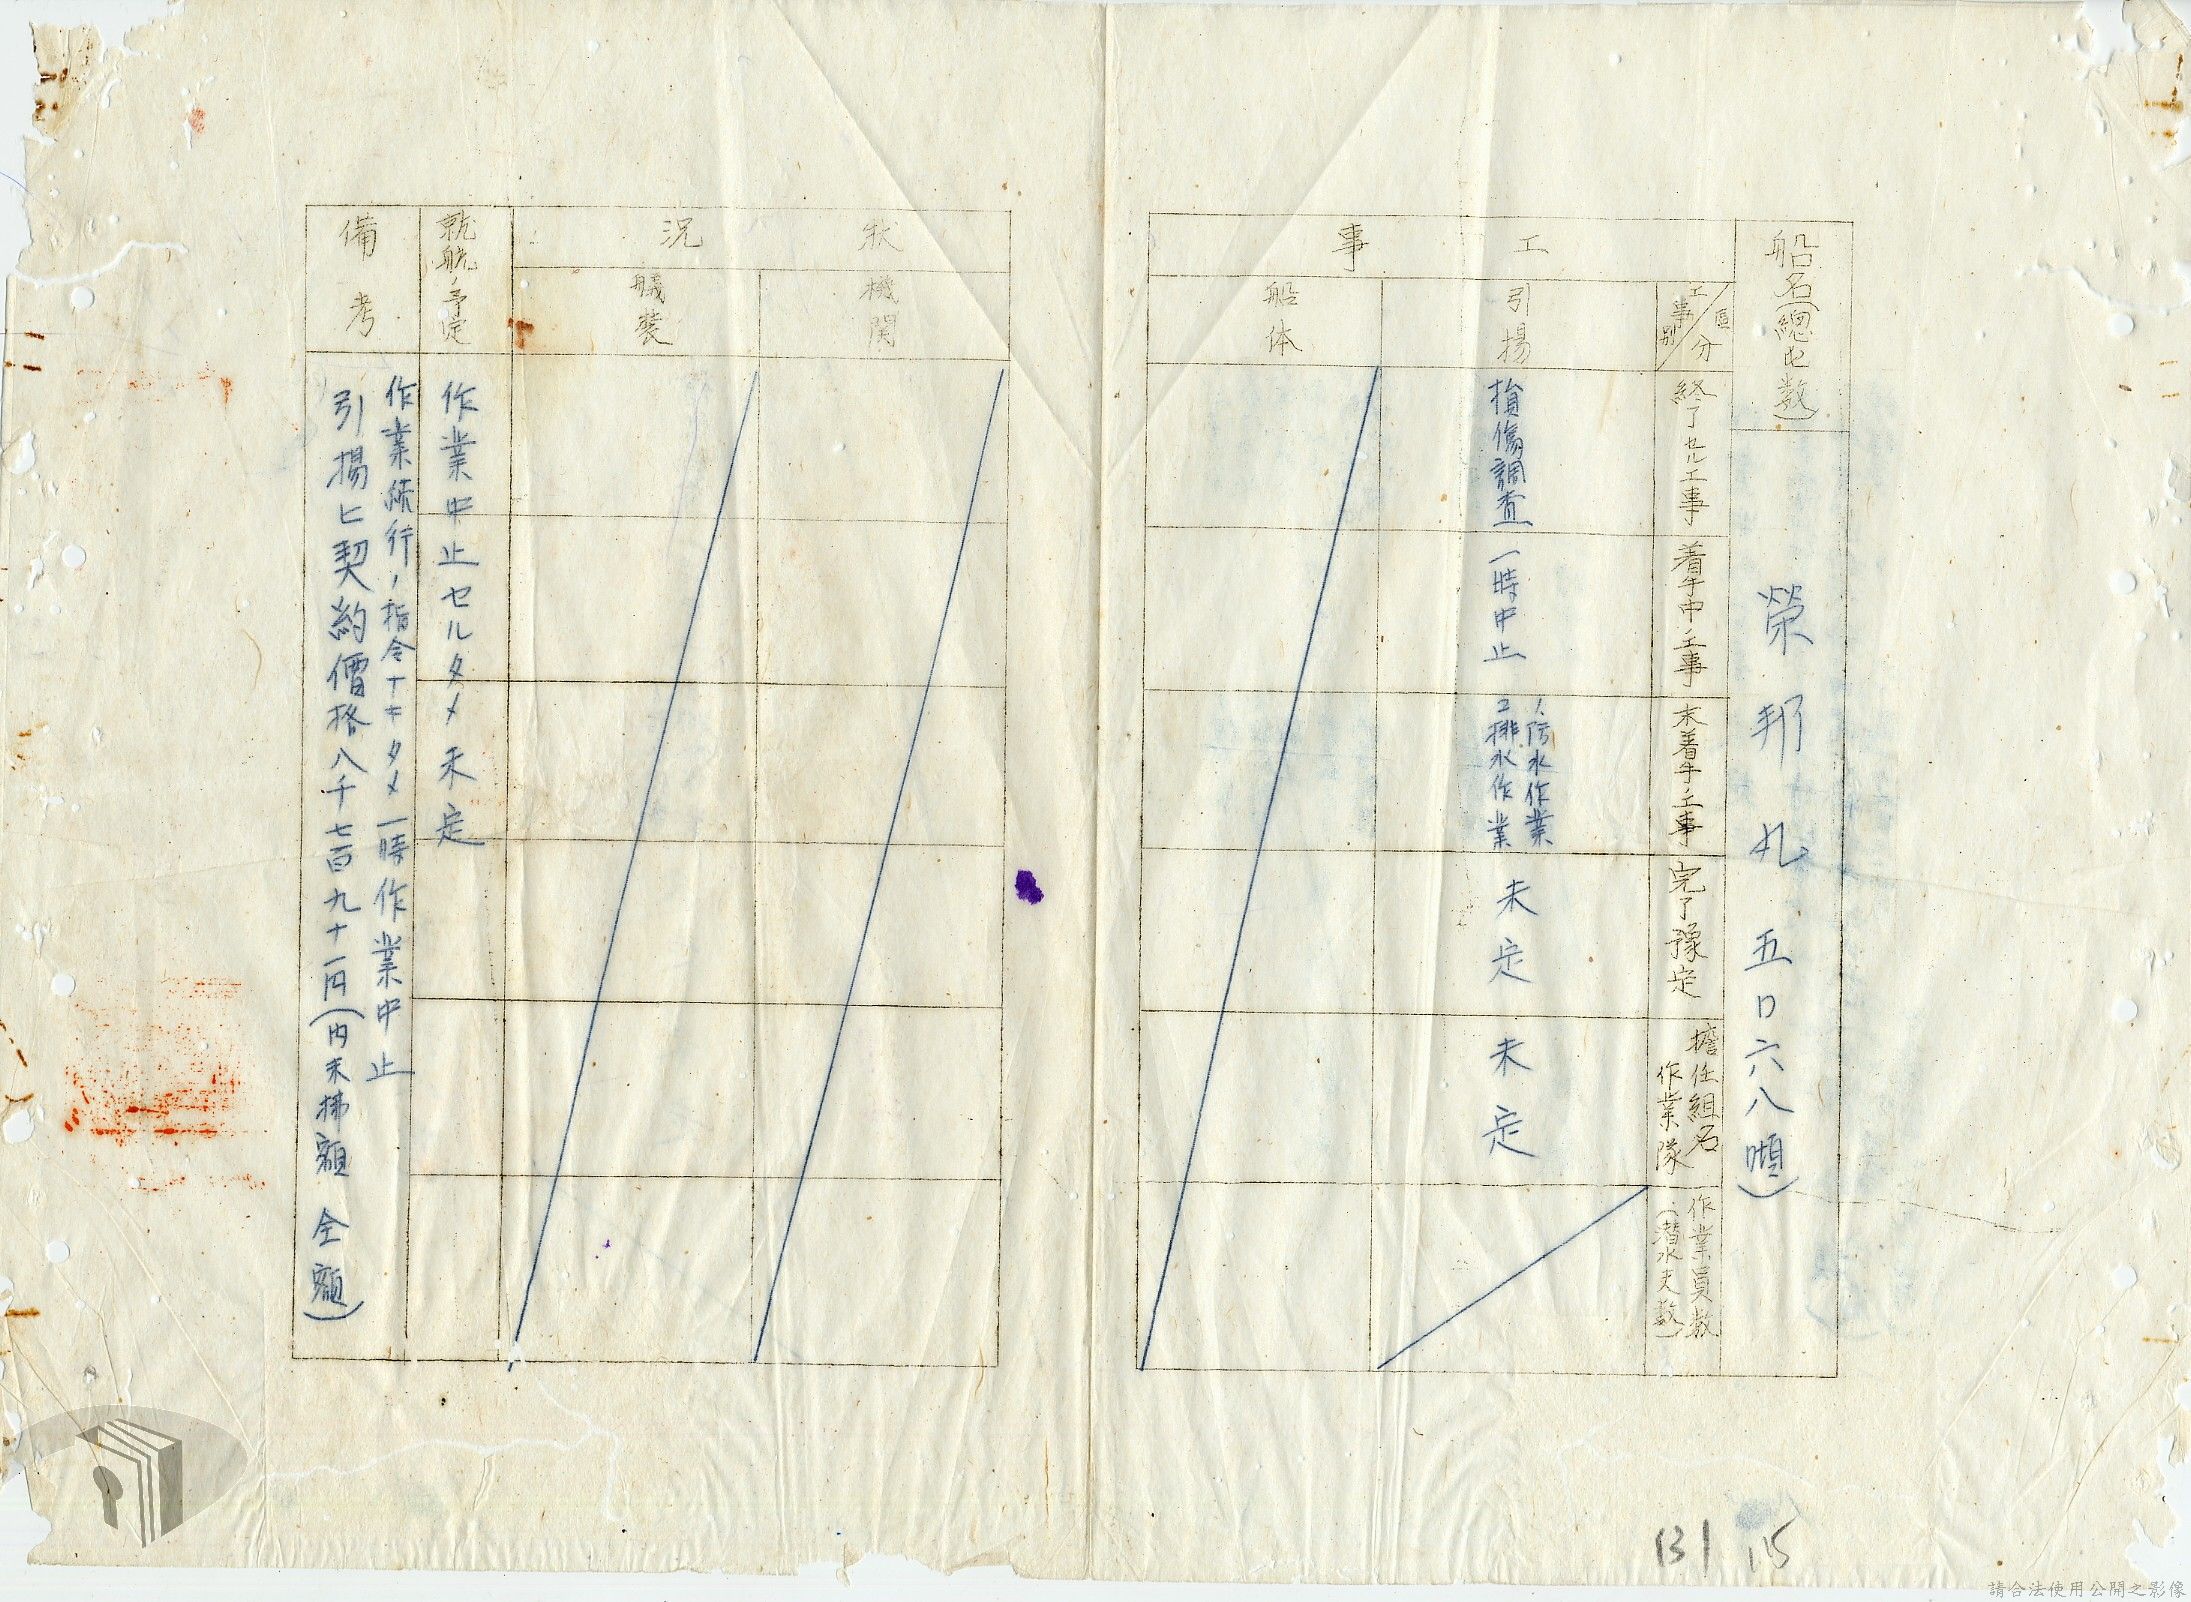 船名(總屯数)
榮邦丸 五〇六八噸)
工事
區分
工事別
終了セル工事
着手中ノ工事
未着手ノ工事
完了豫定
擔任組名
作業隊
作業員数
(潜水夫数)
引揚
損傷調査
一時中止
1、防水作業
2排水作業
未定
未定
船体
狀況
機関
艤装
就航ノ予定
作業中止セルタメ未定
備考
作業続行ノ指令ナキタメ一時作業中止
引揚ヒ契約價格八千七百九十一円(内未拂額 全額)
131 115
請合法使用公開之影像